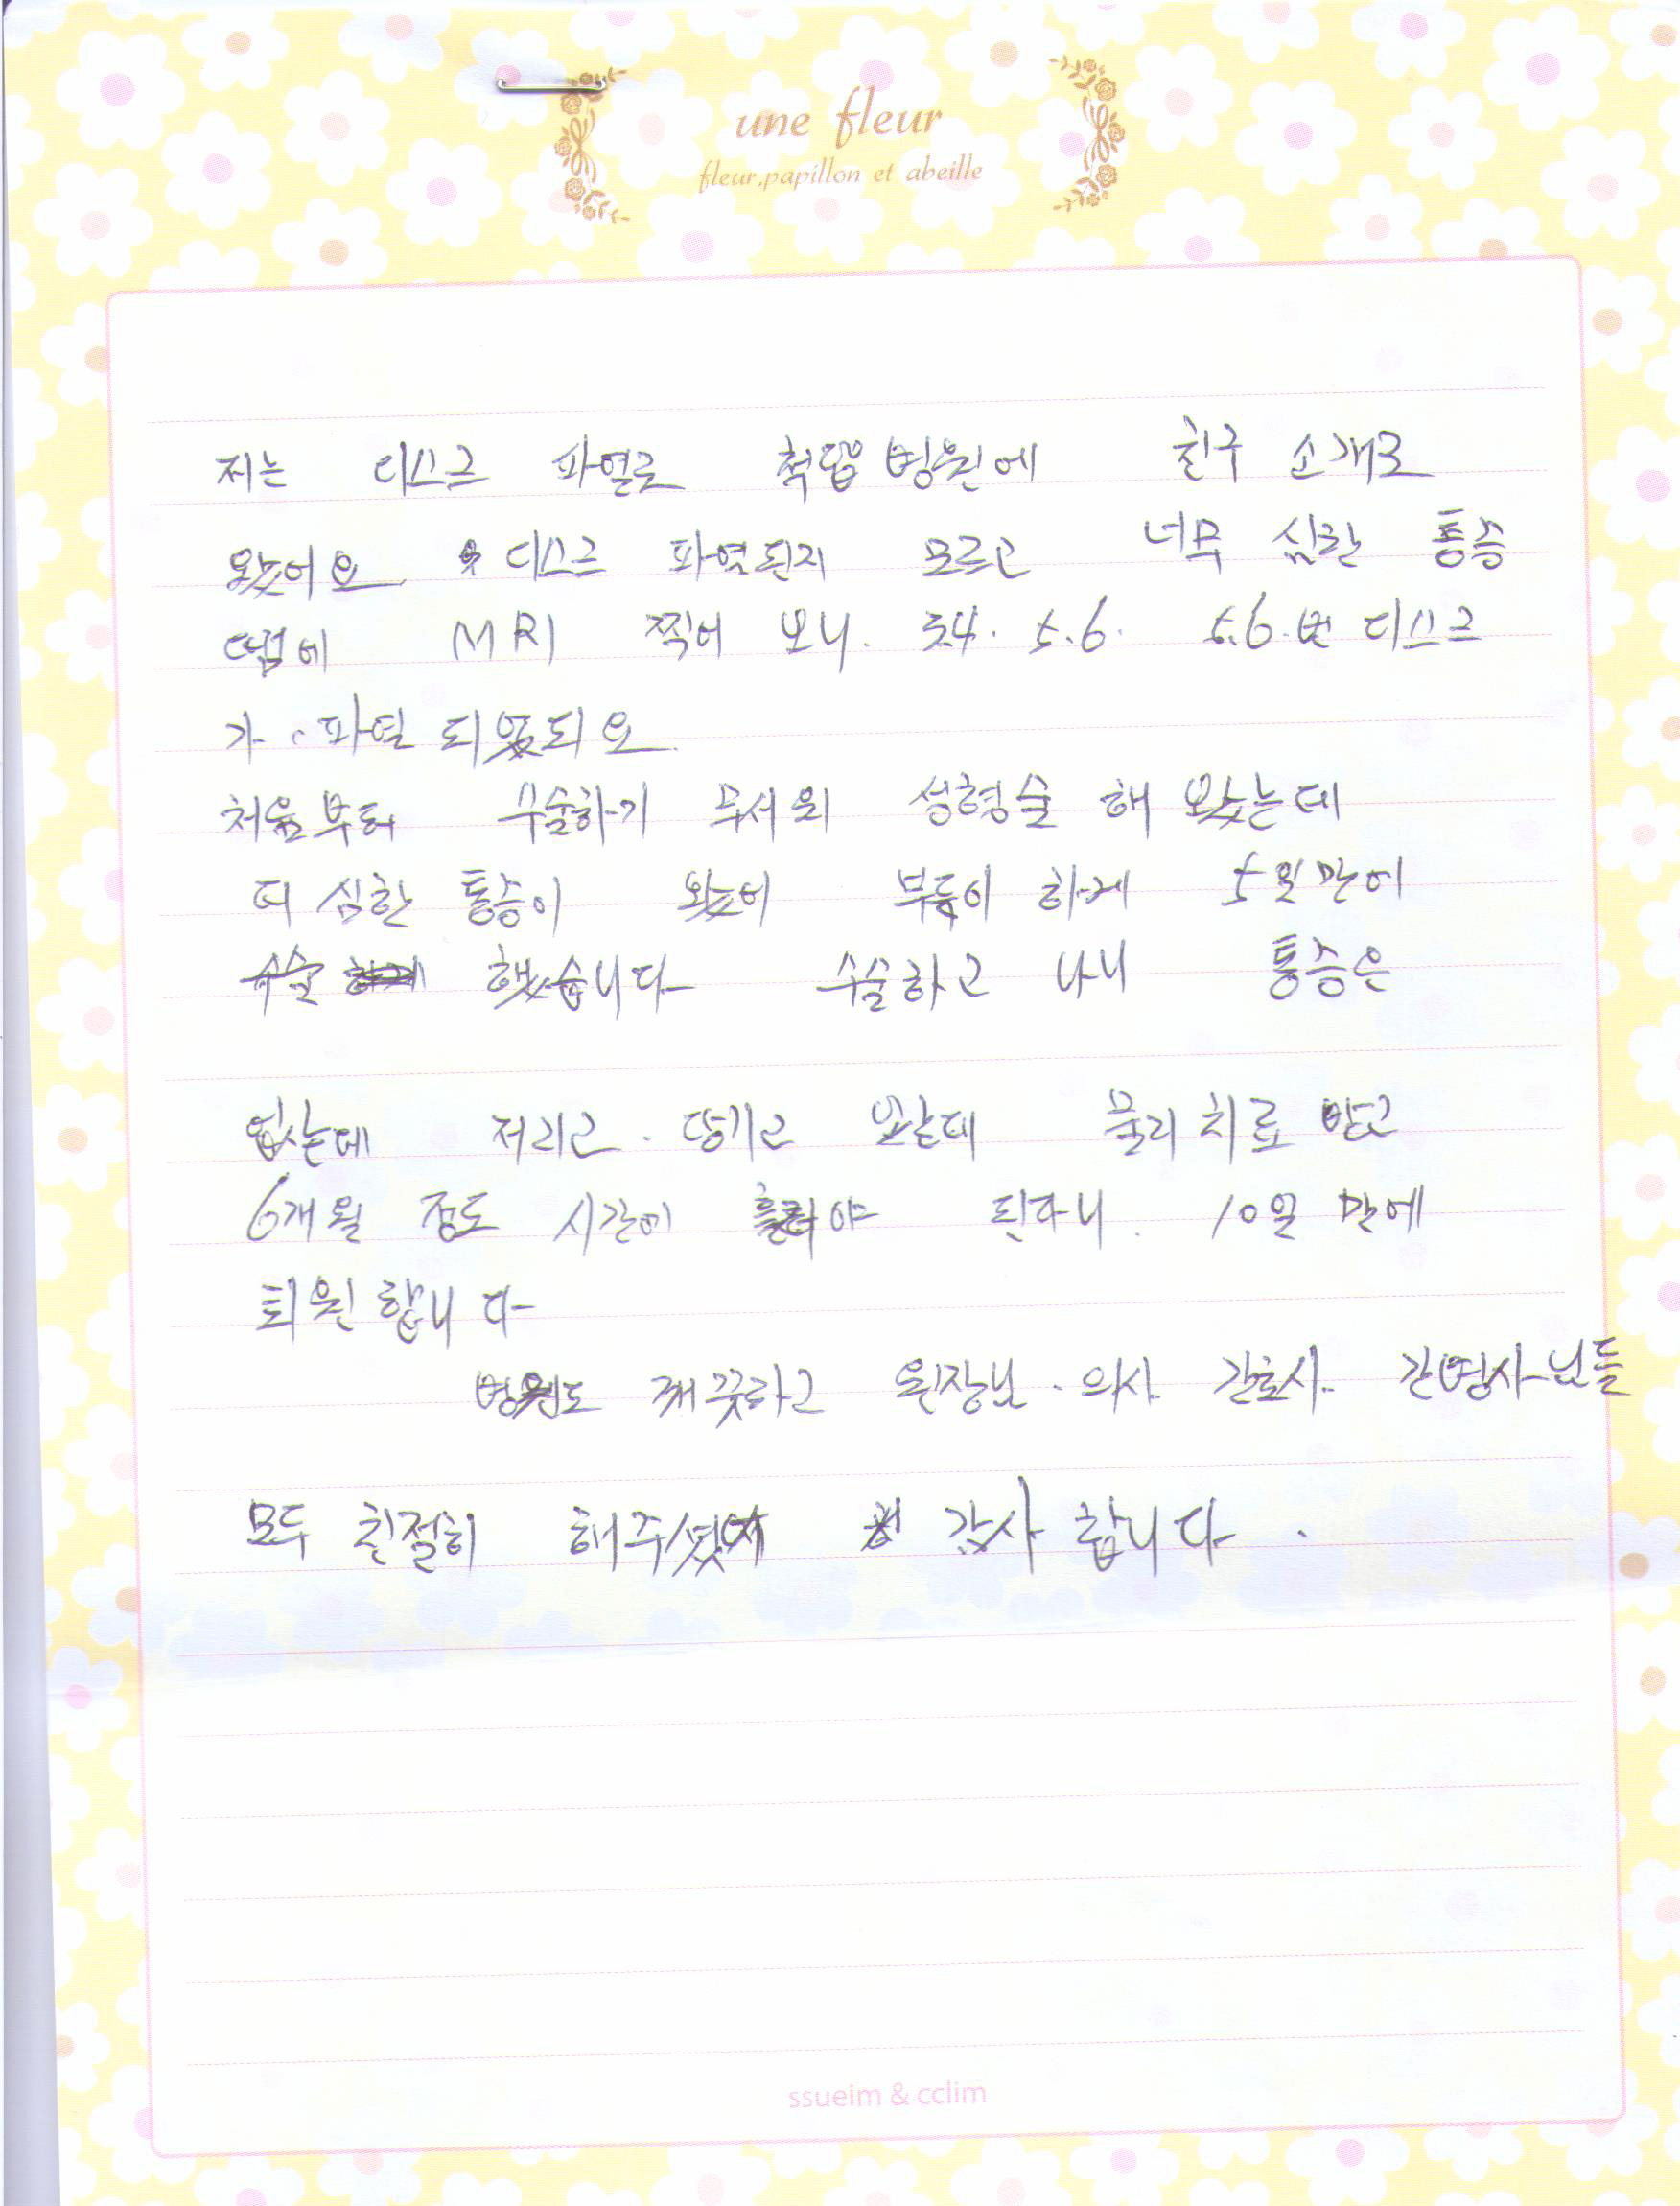 une fleur
fleur.papillon et abeille
저는 디스크 파열로 척탑병원에 친구 소개로
왔어요 디스크 파열된지 모르고 너무 심한 통증
땜에 MRI 찍어 보니. 5.6. 5.6.번 디스크
가. 파열 되었되요
처음부터 수술하기 무서워 성형술 해 보았는데
더 심한 통증이 왔어 부득이 하게 5일만에
수술 했습니다 수술하고 나니 통증은
없는데 저리고. 땅기고 물리치료 받고
6개월 정도 시간이 흘러야 된다니. 10일 만에
퇴원합니다
병원도 깨끗하고 원장님. 의사 간호사 간병사님들
모두 친절히 해주셨어 감사합니다.
ssueim & cclim